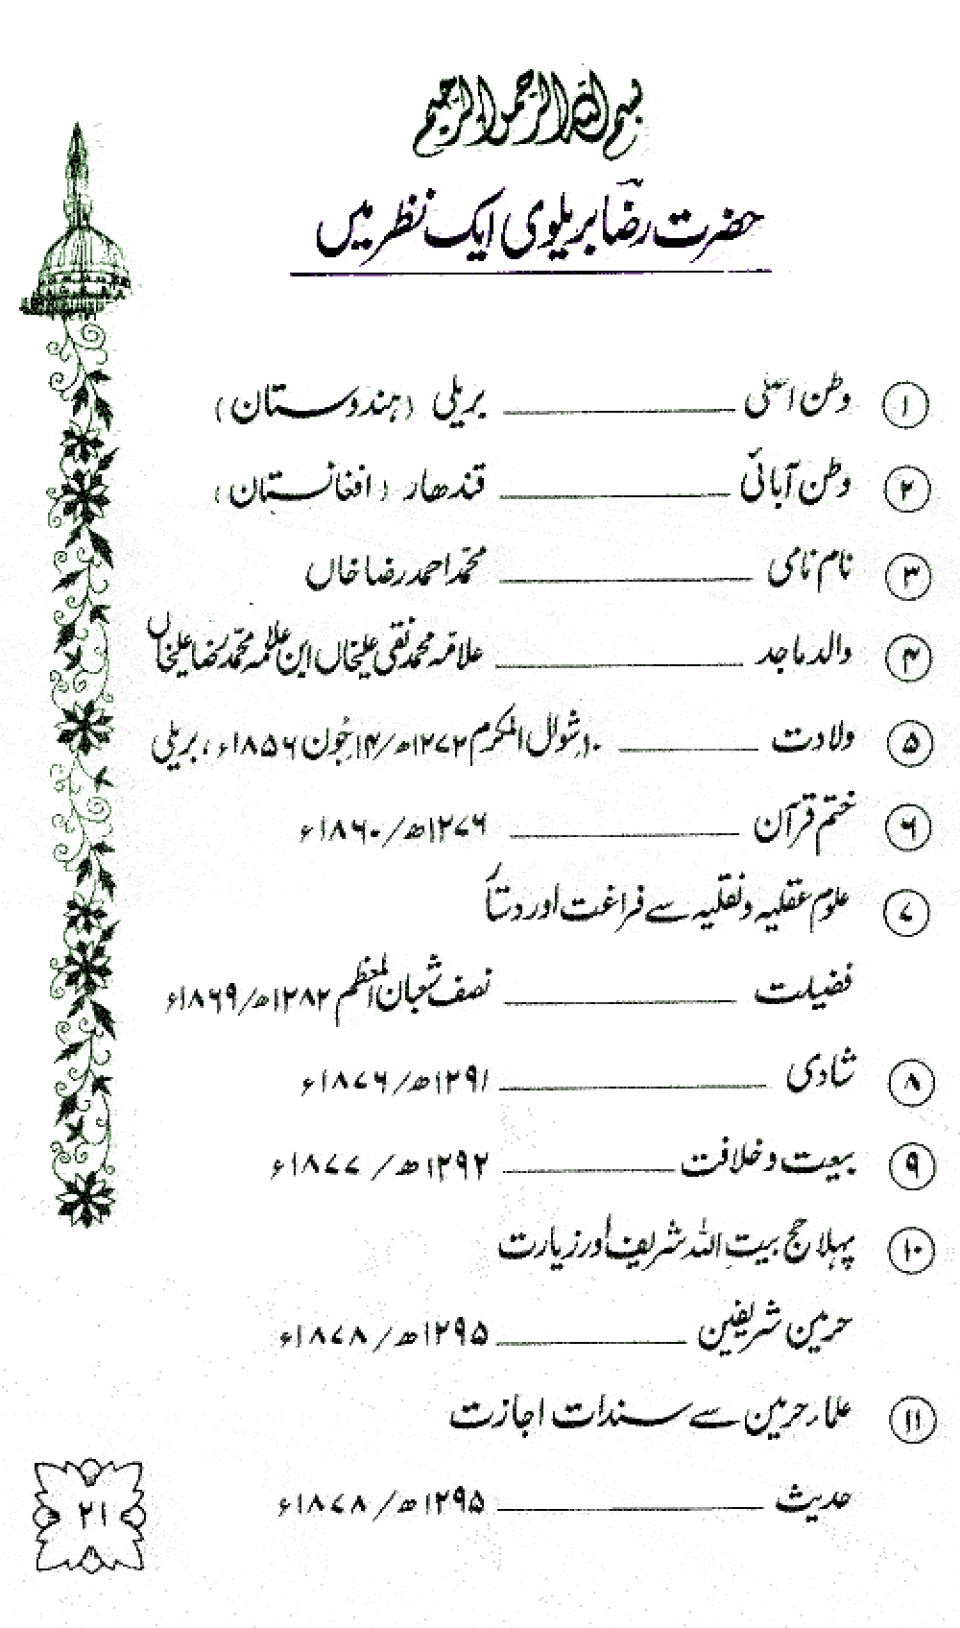 بسم اللہ الرحمن الرحیم
حضرت رضا بریلوی ایک نظر میں
۱ وطن اصلی ـــــــ بریلی (ہندوستان)
۲ وطن آبائی ـــــــ قندھار (افغانستان)
۳ نام نامی ـــــــ محمّد احمد رضا خاں
۴ والد ماجد ـــــــ علامہ محمد نقی علیخاں ابن علامہ محمّد رضا علیخاں
۵ ولادت ـــــــ ۱۰ شوال المکرم ۱۲۷۲ھ/۱۴ جُون ۱۸۵۶ء، بریلی
۶ ختم قرآن ـــــــ ۱۲۷۶ھ/۱۸۶۰ء
۷ علوم عقلیہ و نقلیہ سے فراغت اور دستار
فضیلت ـــــــ نصف شعبان المعظم ۱۲۸۲ھ/۱۸۶۹ء
۸ شادی ـــــــ ۱۲۹۱ھ/۱۸۷۶ء
۹ بیعت و خلافت ـــــــ ۱۲۹۲ھ/۱۸۷۷ء
۱۰ پہلا حج بیت اللہ شریف اور زیارت
حرمین شریفین ـــــــ ۱۲۹۵ھ/۱۸۷۸ء
۱۱ علماء حرمین سے سندات اجازت
حدیث ـــــــ ۱۲۹۵ھ/۱۸۷۸ء
۲۱